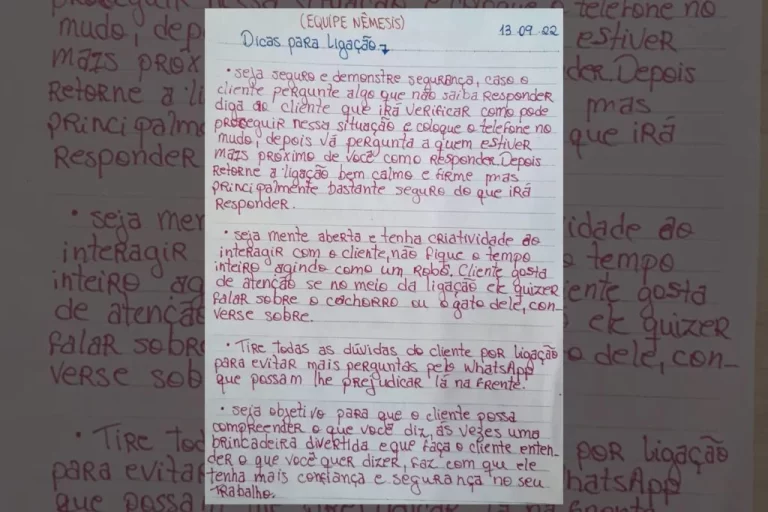 (EQUIPE NÊMESIS)
13.09.22
Dicas para Ligação
• seja seguro e demonstre segurança, caso o
cliente pergunte algo que não saiba Responder
diga ao cliente que irá verificar como pode
prosseguir nessa situação e coloque o telefone no
mudo, depois vá pergunta a quem estiver
mais próximo de você como Responder. Depois
Retorne a ligação bem calmo e firme mas
principalmente bastante seguro do que irá
Responder.
• seja mente aberta e tenha criatividade ao
interagir com o cliente, não fique o tempo
inteiro agindo como um Robô. Cliente gosta
de atenção se no meio da ligação ele quizer
falar sobre o cachorro ou o gato dele, con-
verse sobre.
• Tire todas as dúvidas do cliente por ligação
para evitar mais perguntas pelo WhatsApp
que possam lhe prejudicar lá na frente.
• seja objetivo para que o cliente possa
compreender o que você diz, ás vezes uma
brincadeira divertida e que faça o cliente enten-
der o que você quer dizer, faz com que ele
tenha mais confiança e segurança no seu
Trabalho.